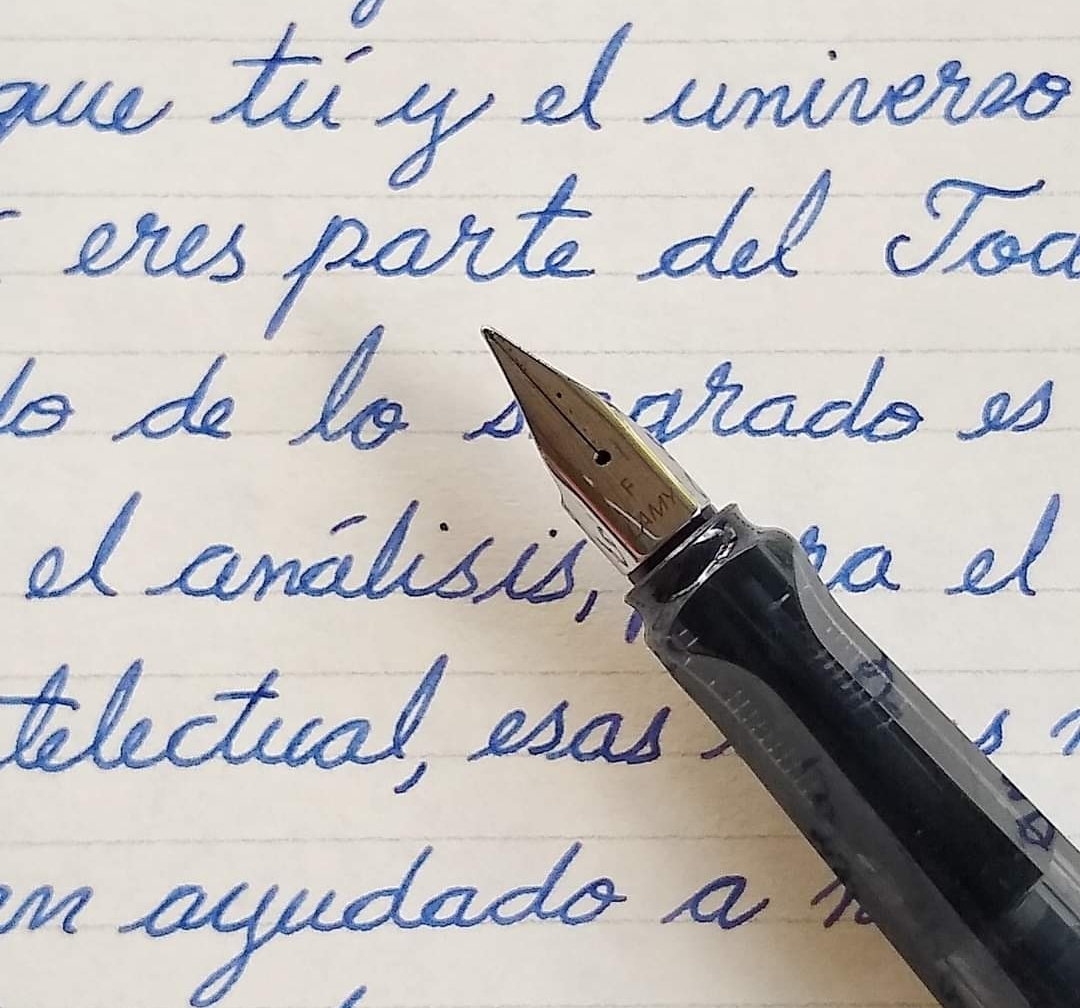 que tú y el universo
eres parte del Tod
do de lo sagrado es
el análisis, para el
telectual, esas
en ayudado a
F
LAMY